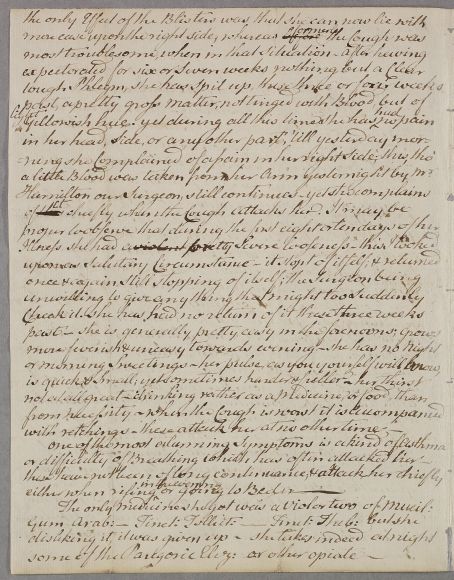 the only Effect of the Blisters was that she can now lie with
more ease upon the right side, whereas formerly the Cough was
most troublesome, when in that Situation - after having
expectorated for six or seven weeks nothing but a Clear
tough Phlegm, she has spit up, these three or four weeks
past, a pretty gross matter, not tinged with Blood but of
Yellowish hue. yet during all this time she has had no pain
in her head, side, or any other part, 'till yesterday mor-
ning she complained of a pain in her right Side; this tho'
a little Blood was taken from her Arm yesternight by Mr
Hamilton our Surgeon, still continues. yet she complains
of it chiefly when the Cough attacks her. It may be
proper to observe that during the first eight or ten days of her
Illness she had a pretty Severe looseness - this I looked
upon as a Salutary Circumstance - it stopt of itself, & returned
once & again still stopping of itself; the Surgeon being
unwilling to give any thing that might too suddenly
Check it. she has had no return of it these three weeks
past - she is generally pretty easy in the forenoons, grows
more feverish & uneasy towards evening - she has no night
or morning Sweatings - her pulse, as you yourself will know,
is quick & small; yet sometimes harder & fuller - her thirst
not at all great - drinking rather as a Medicine, or food, than
from necessity - when the Cough is worst it is accompanied
with retchings - these attack her at no other time -
one of the most alarming Symptoms is a kind of Asthma
or difficulty of Breathing which has often attacked her -
these have not been of long continuance, & attack her chiefly
either when rising or in the evening going to Bed
The only medicines she got was a Viol or two of Mucil:
Gum. Arab: - Tinct: - Tinct: Theb: but she
disliking it, it was given up - she takes indeed at night
some of the Paregoric Elix: or other opiate -